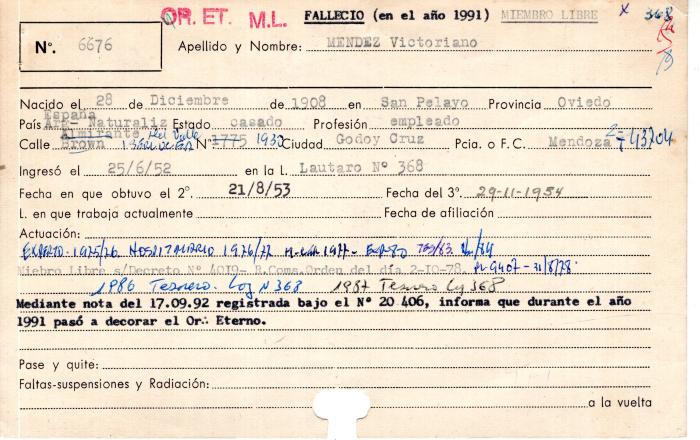 OR. ET. M.L. FALLECIO (en el año 1991) MIEMBRO LIBRE x 368
Nº. 6676 Apellido y Nombre: MENDEZ Victoriano
Nacido el 28 de Diciembre de 1908 en San Pelayo Provincia Oviedo
España
País Arg- Naturaliz Estado casado Profesión empleado
Almirante del Valle
Calle Brown Nº 1775 1930 Ciudad Godoy Cruz Pcia. o F.C. Mendoza 43204
Ingresó el 25/6/52 en la l. Lautaro Nº 368
Fecha en que obtuvo el 2º. 21/8/53 Fecha del 3º. 29-11-1954
L. en que trabaja actualmente Fecha de afiliación
Actuación:
EXPERTO-1975/76 HOSPITALARIO 1976/77 1977- 783/83
Miebro Libre s/Decreto Nº 4019- R.Coms.Orden del día 2-10-78. 9407-31/8/78
1986 Tesorero. Log N 368 1987 Tesorero Log 368
Mediante nota del 17.09.92 registrada bajo el Nº 20 406, informa que durante el año
1991 pasó a decorar el Or∴ Eterno.
Pase y quite:
Faltas-suspensiones y Radiación:
a la vuelta